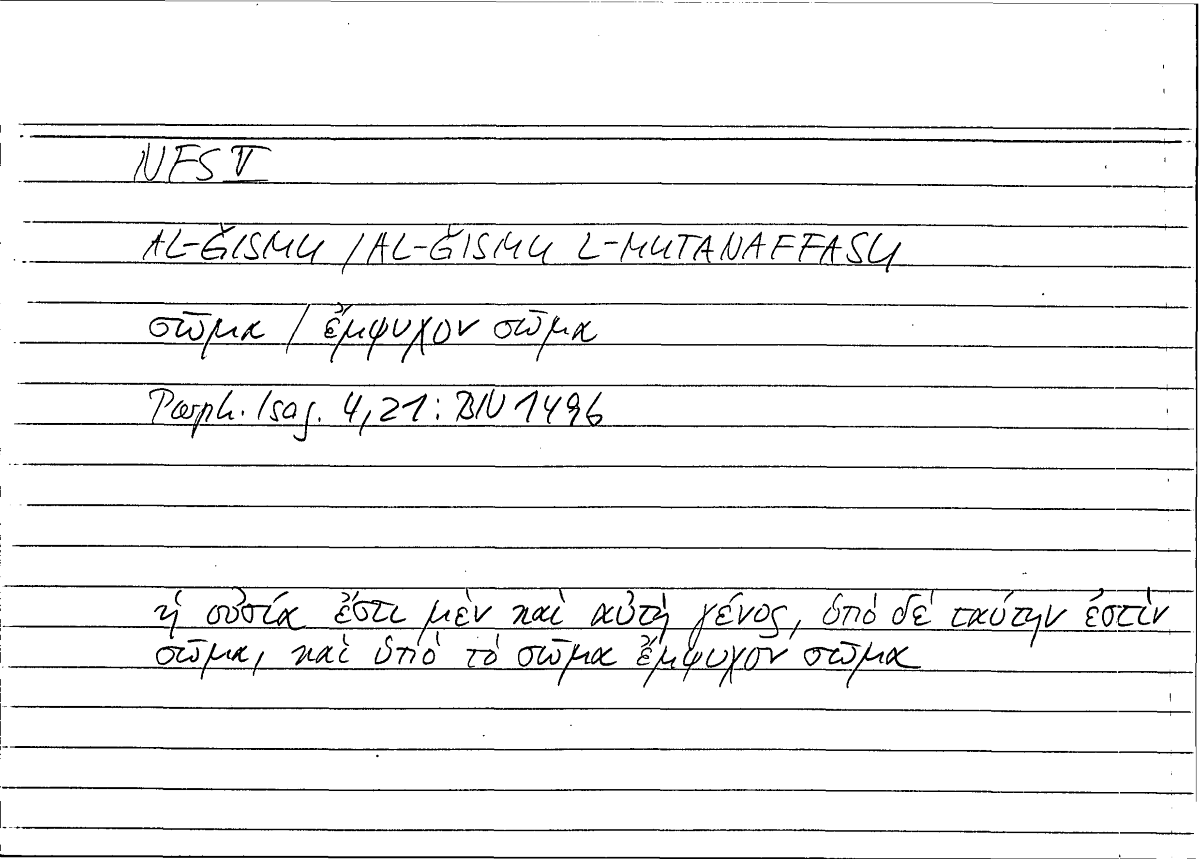 NFS V
AL-ǦISMU / AL-ǦISMU L-MUTANAFFASU
σῶμα / ἔμψυχον σῶμα
Porph. Isag. 4,21: BN 1496
ἡ οὐσία ἔστι μὲν καὶ αὐτὴ γένος, ὑπὸ δὲ ταύτην ἐστὶν
σῶμα, καὶ ὑπὸ τὸ σῶμα ἔμψυχον σῶμα